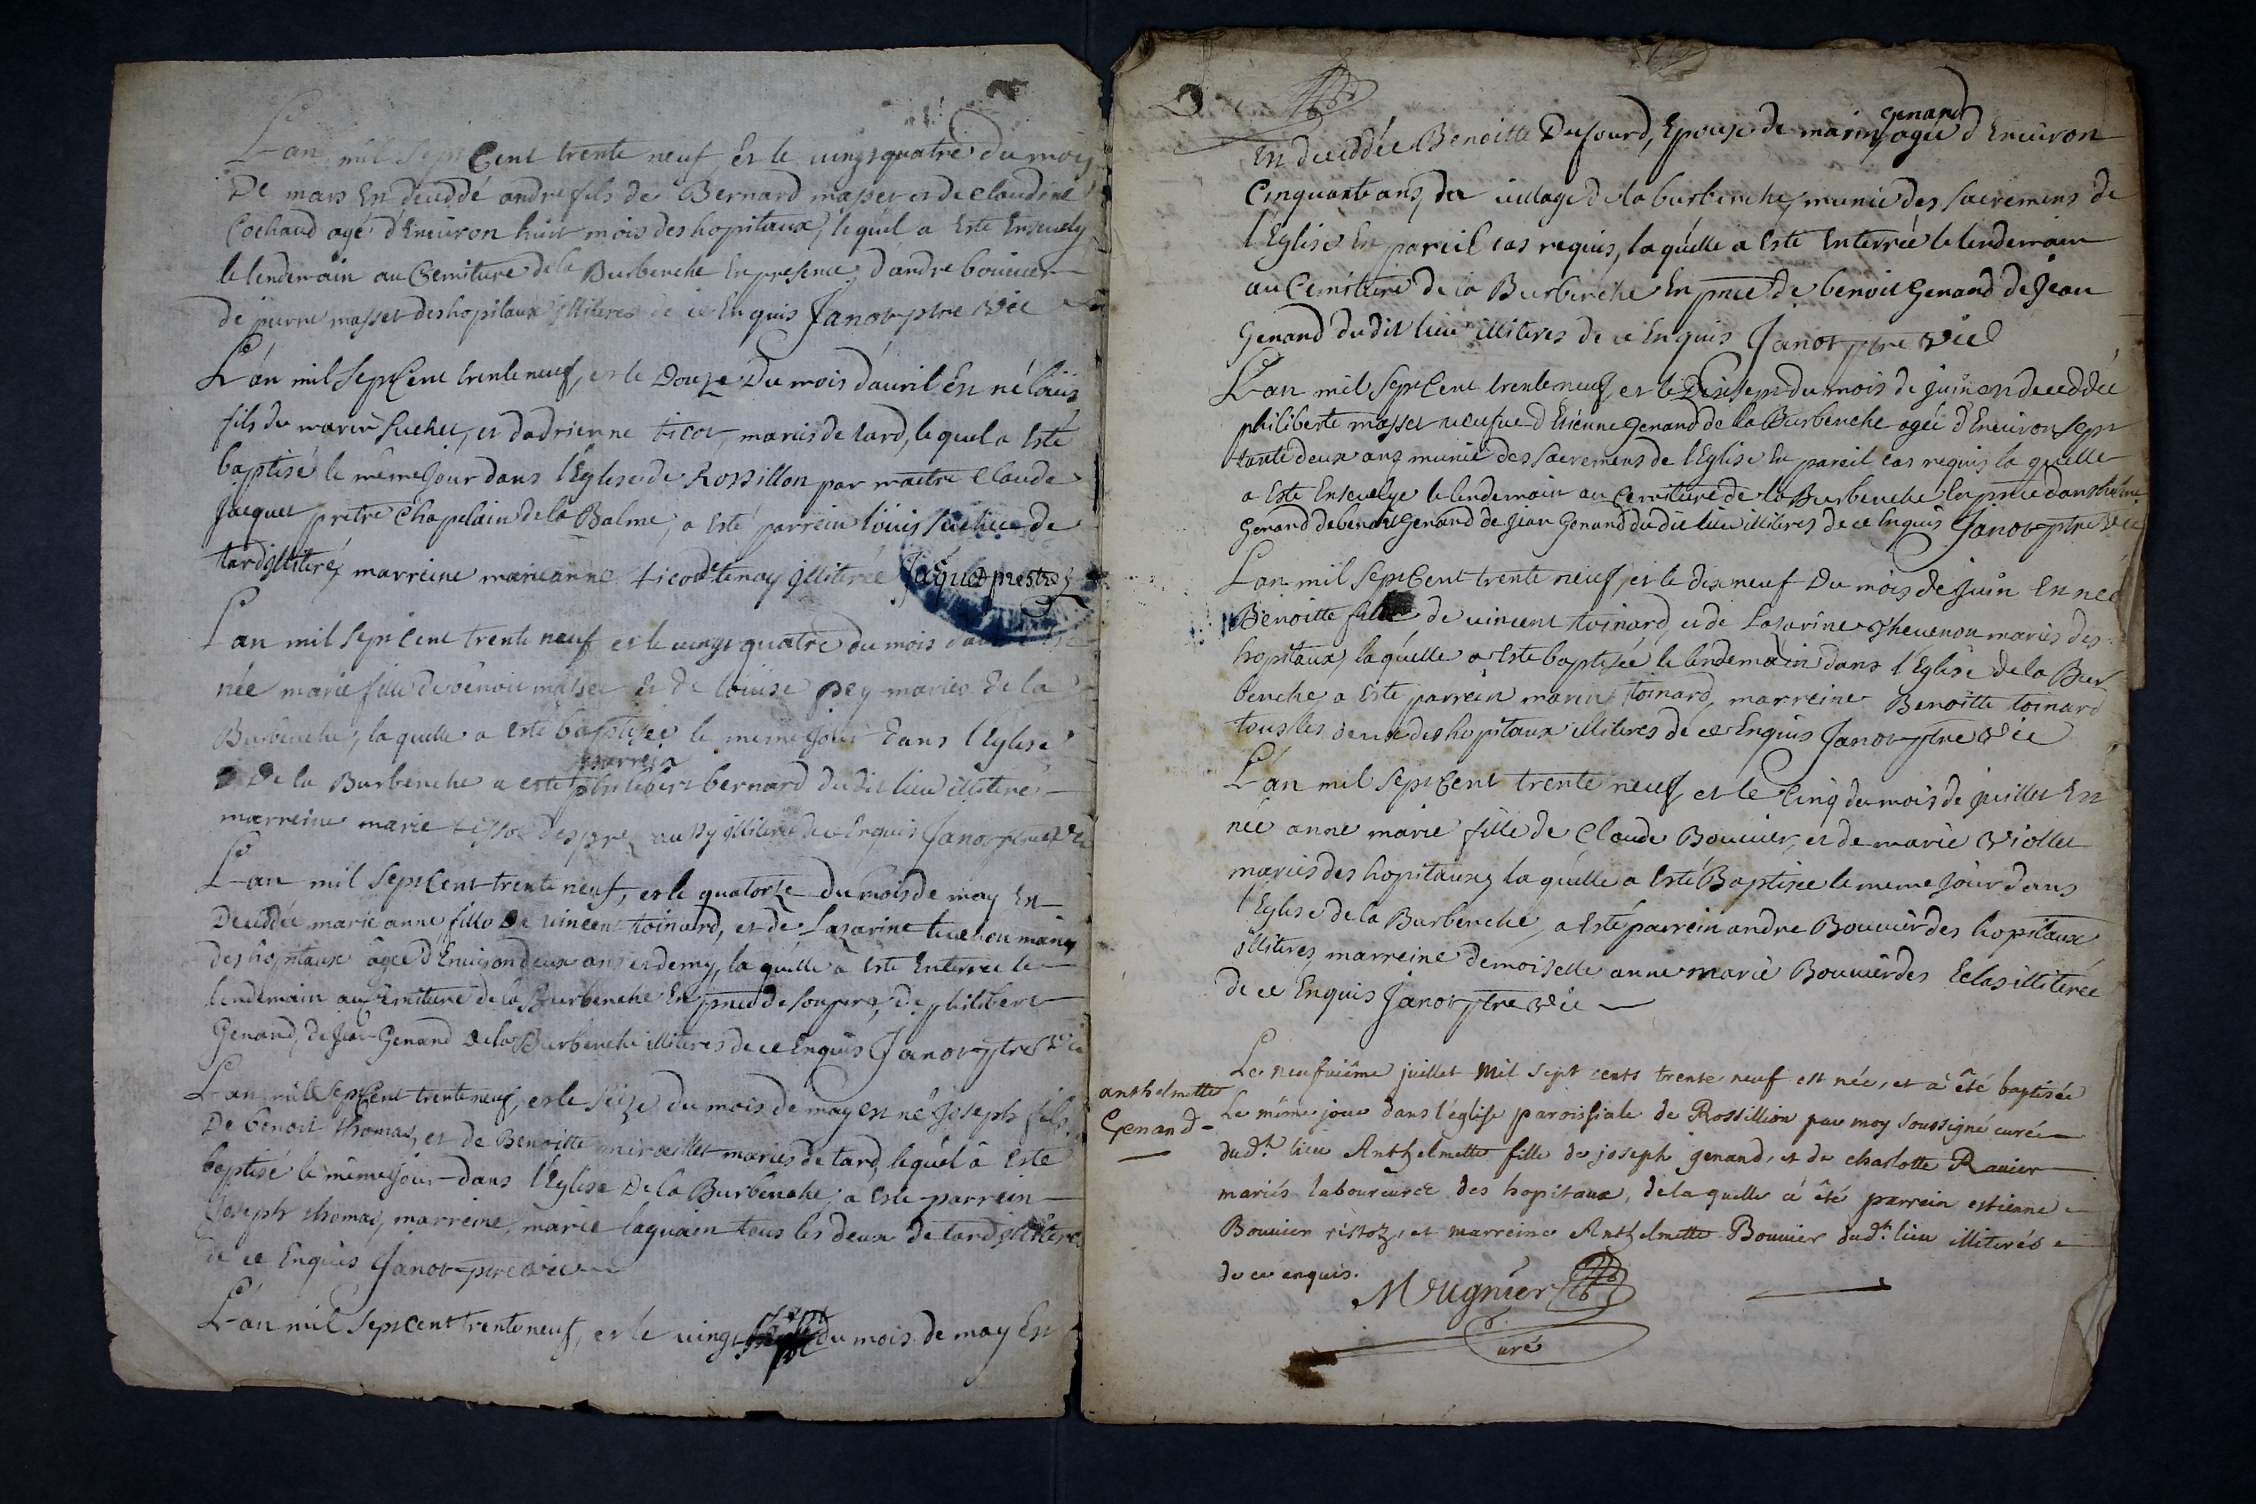 L'an mil sept Cent trente neuf, et le vingt quatre du mois
De mars En deceddé andre fils de Bernard masset et de Claudine
Cochaud agé d'Environ huit mois des hopitaux, lequel a Esté Ensevely
le lendemain au Cemiture de la Burbenche En presence d'andre bouvier
de pierre masset des hopitaux illiteres de ce Enquis Janot ptre vic
L'an mil sept Cent trente neuf, et le Douze Du mois d'avril En né loüis
fils de marin Suchet, et d'adrienne ticot, mariés de tard, le quel a Esté
baptisé le même Jour dans l'Eglise de Rossillon par maitre Claude
Jacquet pretre Chapelain de la Balme, a Esté parrein loüis Suchet de
tard illiteré, marreine marieanne ticod de tenay illiterée Jaquet prestre
L'an mil sept Cent trente neuf et le vingt quatre du mois
née marie fille de benoit masset et de loüise pey mariés de la
Burbenche, la quelle a esté baptisée le meme Jour Dans l'Eglise
De la Burbenche a esté parrein philibert bernard du dit lieu illiteré
marreine marie aussy illiterée de ce Enquis Janot ptre vic
L'an mil sept Cent trente neuf, et le quatorze du mois de may En
Deceddée marie anne fille De vincent toinard, et de Lazarine tevenou mariés
des hopitaux âgée d'Environ deux ans et demy, la quelle a Esté Enterrée le
lendemain au Cemiture de la Burbenche En pnce de philibert
Genand, de Jean Genand de la Burbenche illiteres de ce Enquis Janot ptre vic
L'an mil sept Cent trente neuf, et le seize du mois de may En né Joseph fils
De benoit thomas, et de Benoitte miraillet mariés de tard, lequel a Esté
baptisé le même Jour dans l'Eglise De la Burbenche; a Esté parrein
Joseph thomas, marreine, marie laquain tous les deux de tard illiteres
de ce Enquis Janot ptre vic
L'an mil sept Cent trente neuf, et le vingt du mois de may En
En deceddée Benoitte Dufourd, Epouse de marin Genand agée d'Environ
Cinquante ans, du village de la burbenche, munie des sacremens de
l'Eglise En pareil cas requis, la quelle a Esté Enterrée le lendemain
au Cemiture de la Burbenche En pnce de benoit Genand de Jean
Genand du dit lieu illiteres de ce Enquis Janot ptre vic
L'an mil sept Cent trente neuf, et le Dixsept du mois de Juin en deceddée
philiberte masset veufve d'Etiénne Genand de la Burbenche agée d'Environ sept
tante deux ans munie des sacremens de l'Eglise En pareil cas requis la quelle
a Esté Ensevelye le lendemain au Cemiture de la Burbenche En pnce d'anthelme
Genand de benoit Genand de Jean Genand du dit lieu illiteres de ce Enquis Janot ptre vic
L'an mil sept Cent trente neuf, et le dix neuf Du mois de Juin En née
Benoitte fille de vincent toinard, et de Lazarine thevenou mariés des
hopitaux, la quelle a Esté baptisée le lendemain dans l'Eglise de la Bur
benche, a Esté parrein marin toinard, marreine Benoitte toinard
tous les deux des hopitaux illiteres de ce Enquis Janot ptre vic
L'an mil sept Cent trente neuf, et le Cinq du mois de juillet En
née anne marie fille de Claude Bouvier, et de marie Viollet
mariés des hopitaux, la quelle a Esté Baptisée le meme Jour dans
l'Eglise de la Burbenche, a Esté parrein andre Bouvier des hopitaux
illiteres, marreine demoiselle anne marie Bouvier des Eclas illiterée
de ce Enquis Janot ptre vic
Le neufvième juillet mil sept cents trente neuf est née, et a été baptisée
anthelmette
Genand
Le même jour dans l'église paroissiale de Rossillion par moy soussigné curé
dud.t lieu Anthelmette fille de joseph genand, et de charlotte Ravier
mariés laboureurs des hopitaux, de la quelle a été parrein estienne
Bouvier ristoz, et marreine Anthelmette Bouvier dud.t lieu illiterés
de ce enquis. Mugnier
Curé